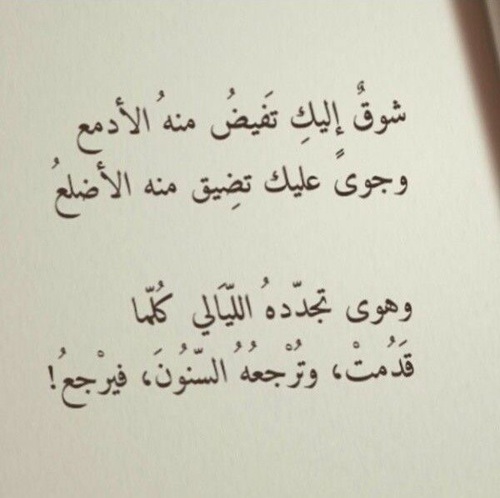 شوقٌ إليكِ تَفيضُ منهُ الأدمع
وجوىً عليك تضِيق منه الأضلعُ
وهوى تجدّدهُ اللّيَالي كُلّما
قَدُمتْ، وتُرْجعُهُ السّنُونَ، فيرْجعُ!